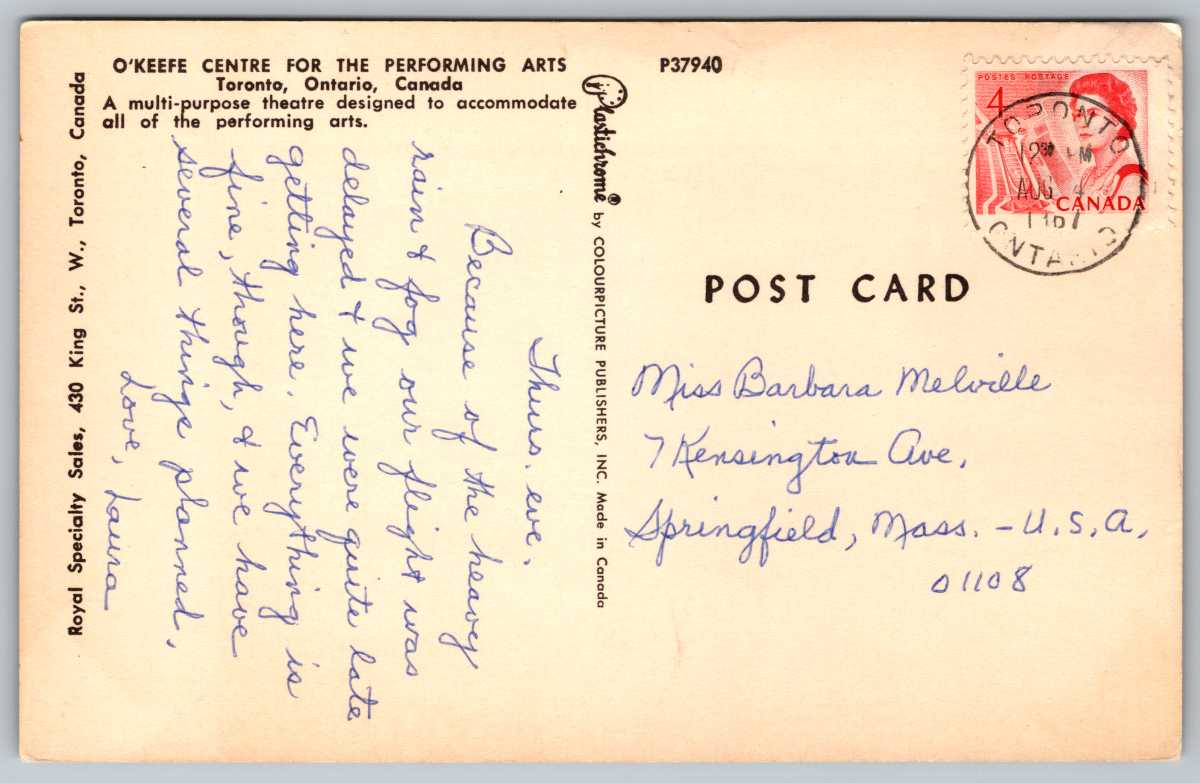 O'KEEFE CENTRE FOR THE PERFORMING ARTS
Toronto, Ontario, Canada
A multi-purpose theatre designed to accommodate
all of the performing arts.
P37940
Royal Specialty Sales, 430 King St., W., Toronto, Canada
Plastichrome® by COLOURPICTURE PUBLISHERS, INC. Made in Canada
Thurs. eve.
Because of the heavy
rain & fog our flight was
delayed & we were quite late
getting here. Everything is
fine, though, & we have
several things planned.
Love, Laura
POSTES POSTAGE
4
CANADA
TORONTO
PM
AUG 4
ONTARIO
POST CARD
Miss Barbara Melville
7 Kensington Ave.
Springfield, Mass. - U.S.A.
01108